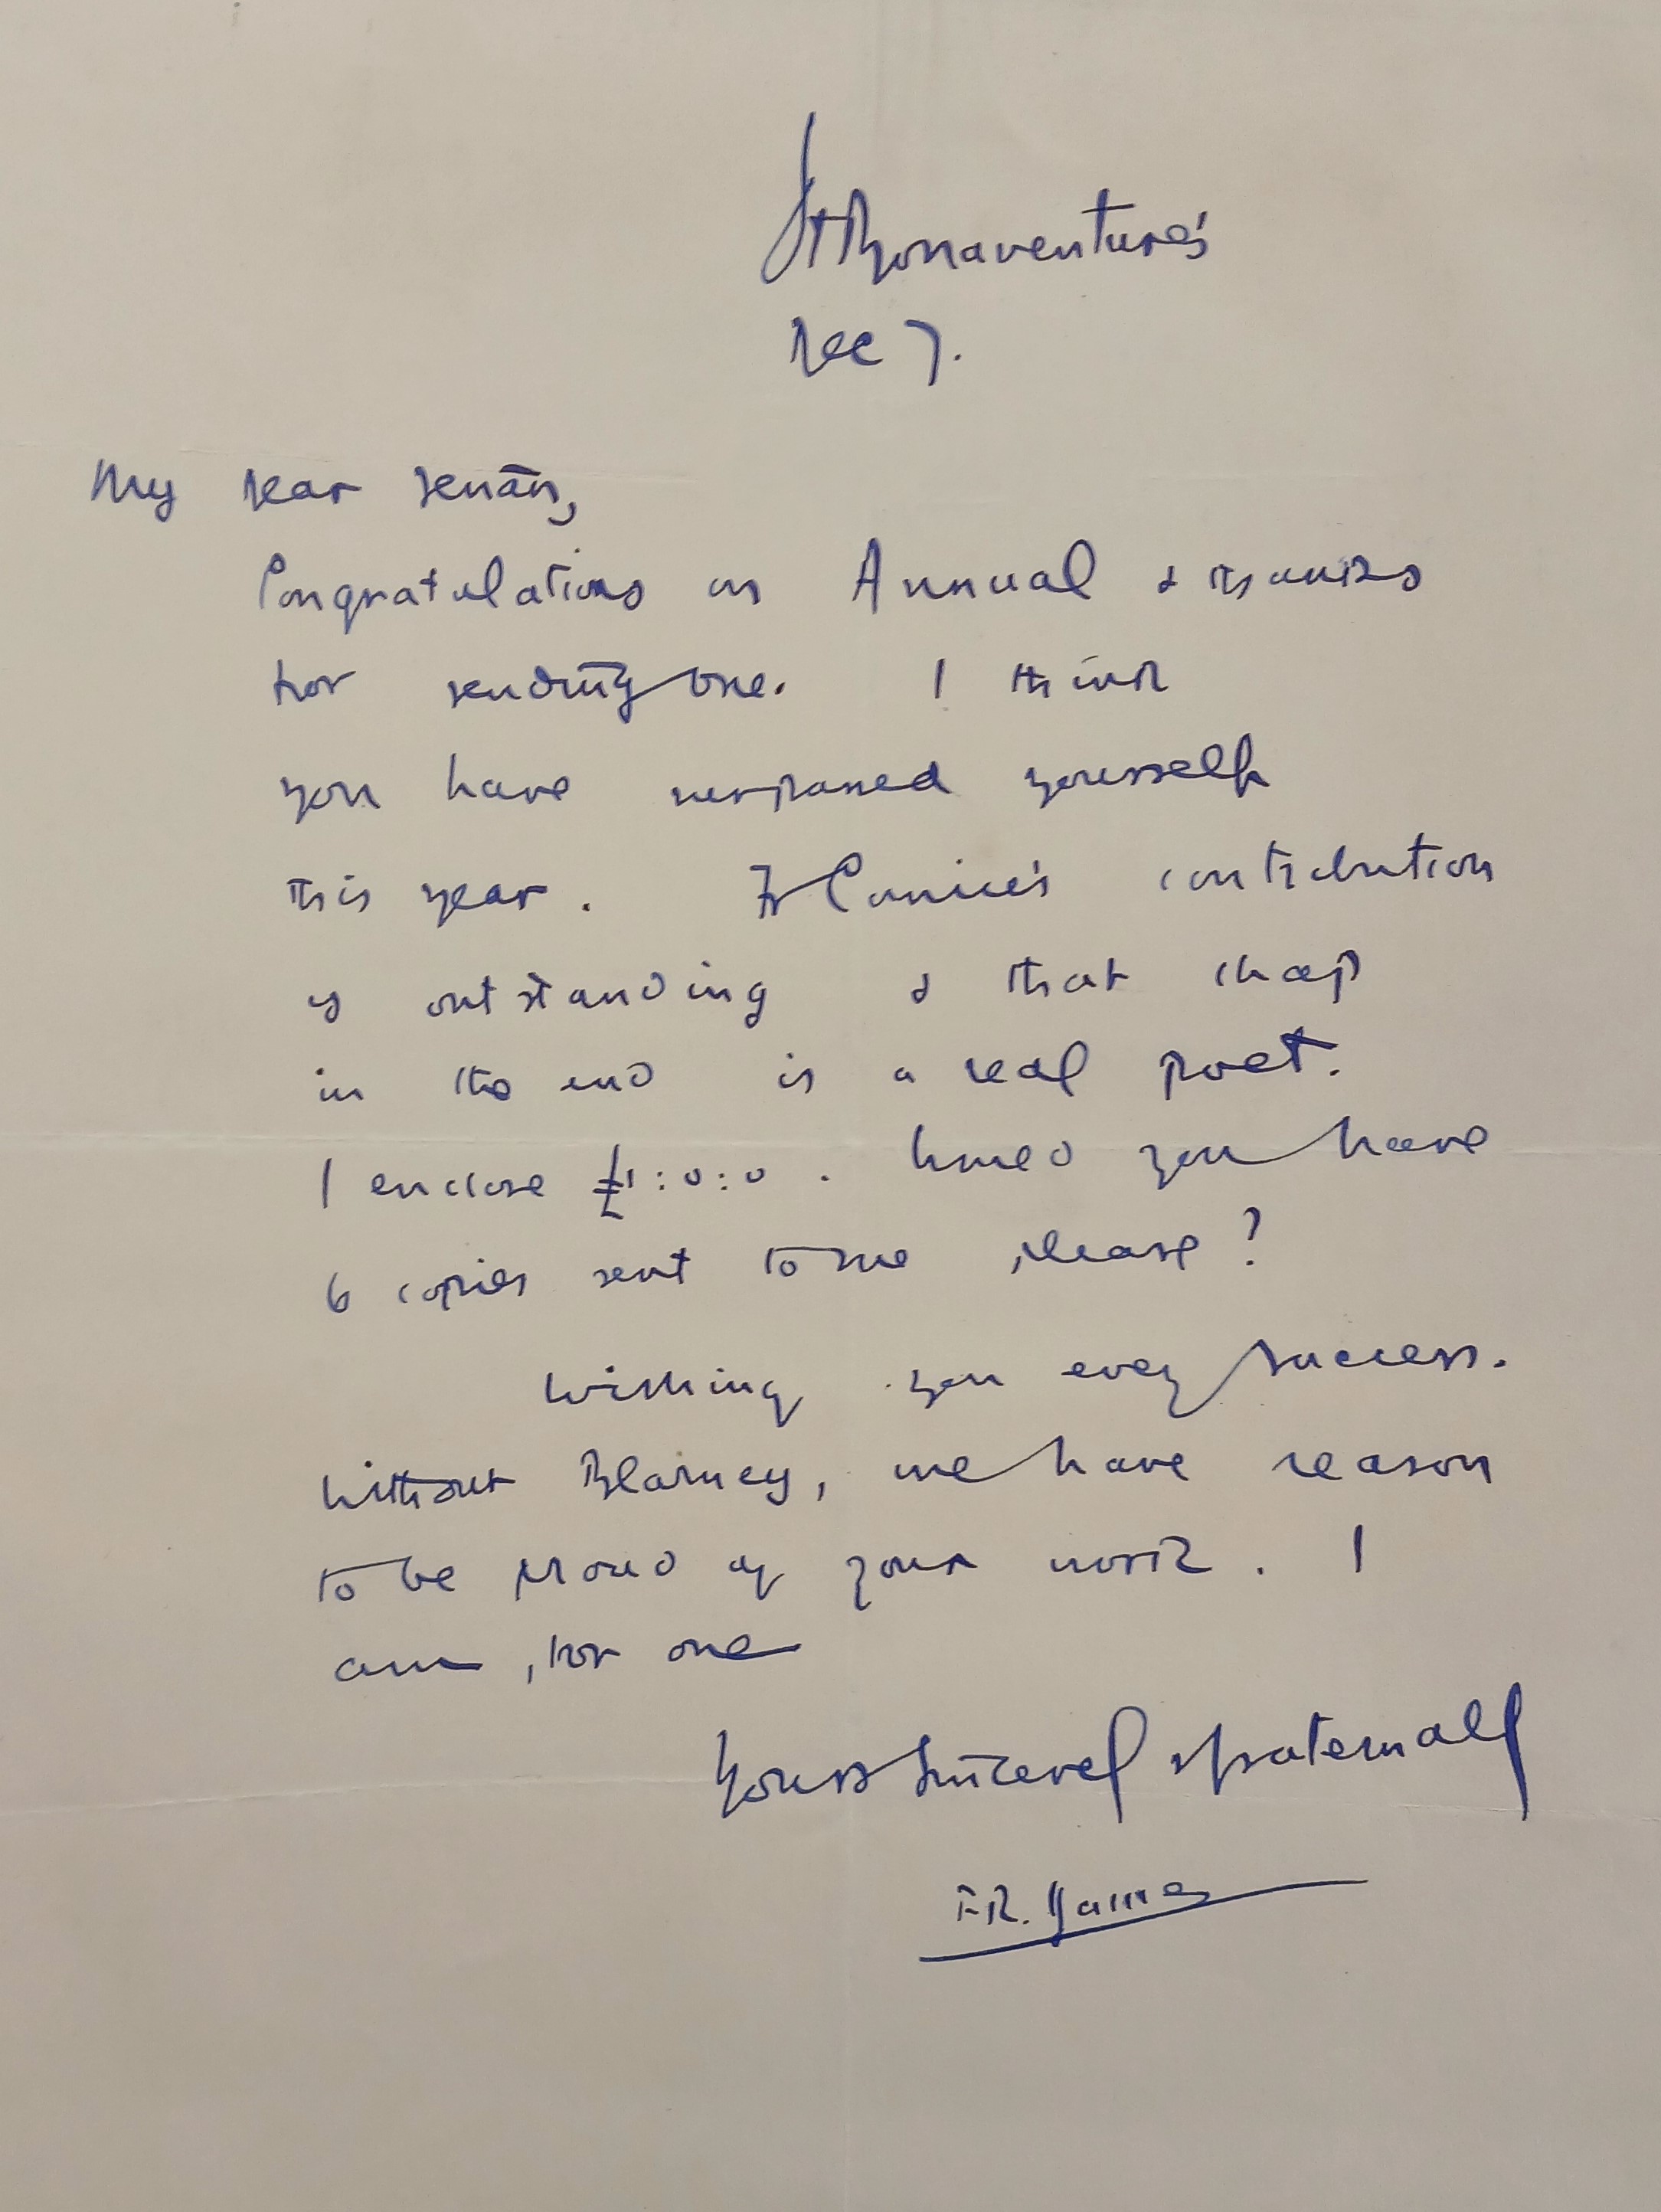 St Bonaventure's
Dec 7.
My dear Senan,
Congratulations on Annual & thanks
for sending one. I think
you have surpassed yourself
this year. Fr Canice's contribution
is outstanding & that chap
in the end is a real poet.
I enclose £1:0:0. Would you have
6 copies sent to me please?
Wishing you every success.
Without Blarney, we have reason
to be proud of your work. I
am, for one
Yours sincerely & fraternally
FR. James